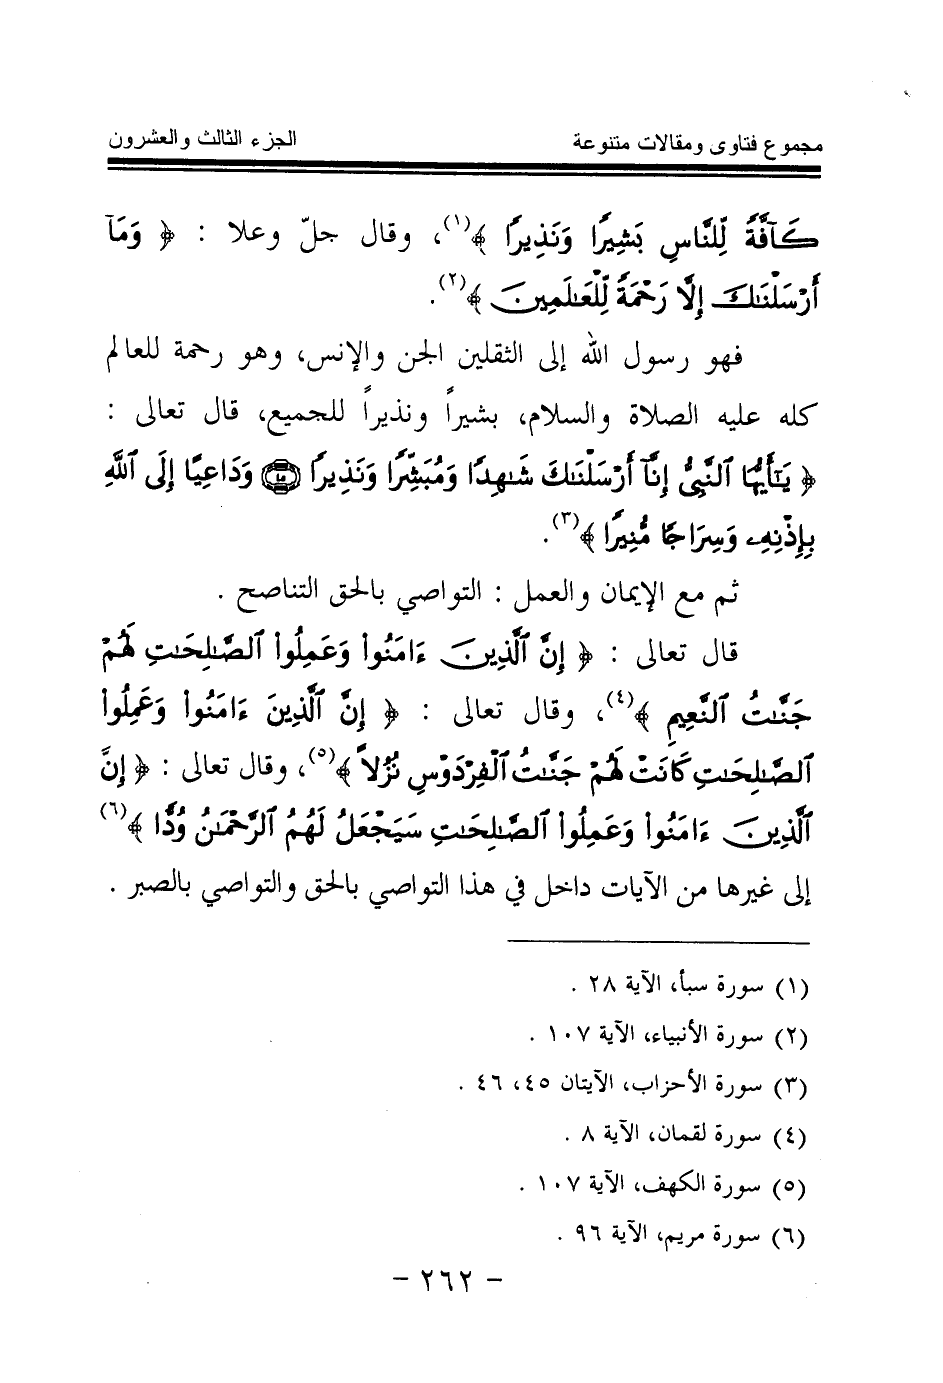 مجموع فتاوى ومقالات متنوعة الجزء الثالث والعشرون
كَآفَّةً لِّلنَّاسِ بَشِيرًا وَنَذِيرًا ﴾(١)، وقال جلّ وعلا : ﴿ وَمَآ
أَرْسَلْنَـٰكَ إِلَّا رَحْمَةً لِّلْعَـٰلَمِينَ ﴾(٢).
فهو رسول الله إلى الثقلين الجن والإنس، وهو رحمة للعالم
كله عليه الصلاة والسلام، بشيراً ونذيراً للجميع، قال تعالى :
﴿ يَـٰٓأَيُّهَا ٱلنَّبِىُّ إِنَّآ أَرْسَلْنَـٰكَ شَـٰهِدًا وَمُبَشِّرًا وَنَذِيرًا ۝٤٥ وَدَاعِيًا إِلَى ٱللَّهِ
بِإِذْنِهِۦ وَسِرَاجًا مُّنِيرًا ﴾(٣).
ثم مع الإيمان والعمل : التواصي بالحق التناصح .
قال تعالى : ﴿ إِنَّ ٱلَّذِينَ ءَامَنُوا۟ وَعَمِلُوا۟ ٱلصَّـٰلِحَـٰتِ لَهُمْ
جَنَّـٰتُ ٱلنَّعِيمِ ﴾(٤)، وقال تعالى : ﴿ إِنَّ ٱلَّذِينَ ءَامَنُوا۟ وَعَمِلُوا۟
ٱلصَّـٰلِحَـٰتِ كَانَتْ لَهُمْ جَنَّـٰتُ ٱلْفِرْدَوْسِ نُزُلاً ﴾(٥)، وقال تعالى : ﴿ إِنَّ
ٱلَّذِينَ ءَامَنُوا۟ وَعَمِلُوا۟ ٱلصَّـٰلِحَـٰتِ سَيَجْعَلُ لَهُمُ ٱلرَّحْمَـٰنُ وُدًّا ﴾(٦)
إلى غيرها من الآيات داخل في هذا التواصي بالحق والتواصي بالصبر .
(١) سورة سبأ، الآية ٢٨ .
(٢) سورة الأنبياء، الآية ١٠٧ .
(٣) سورة الأحزاب، الآيتان ٤٥، ٤٦ .
(٤) سورة لقمان، الآية ٨ .
(٥) سورة الكهف، الآية ١٠٧ .
(٦) سورة مريم، الآية ٩٦ .
- ٢٦٢ -